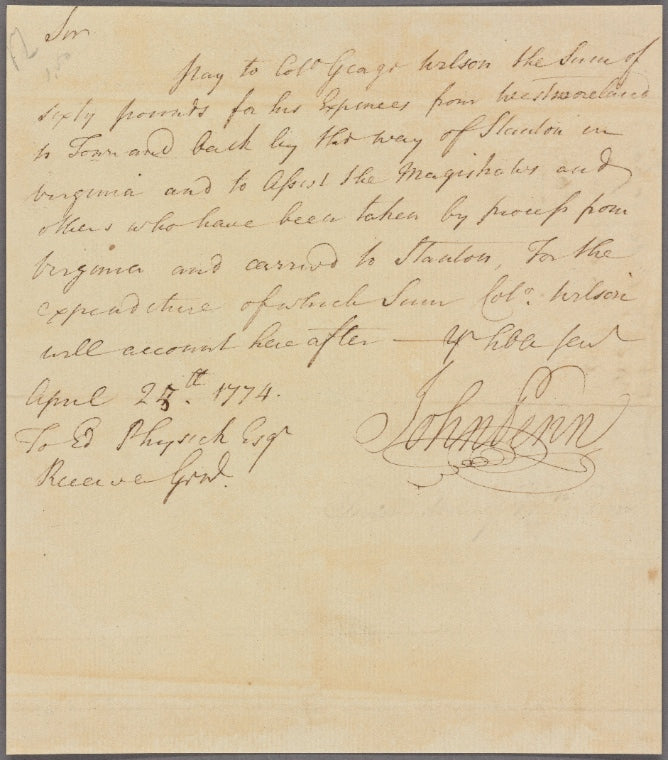 Sir
pay to Col.º George Wilson the Sum of
sixty pounds for his Expences from Westmoreland
to Town and back by the way of Stanton in
Virginia and to Assist the Magistrates and
others who have been taken by process from
Virginia and carried to Stanton, For the
expenditure of which Sum Col.º Wilson
will account hereafter —
April 25th. 1774.
John Penn
To Ed Physick Esqr
Receiver Genl.